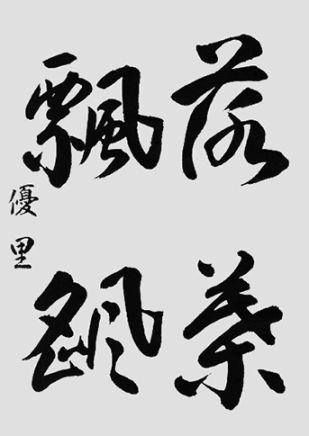 落葉
飄颻
優里